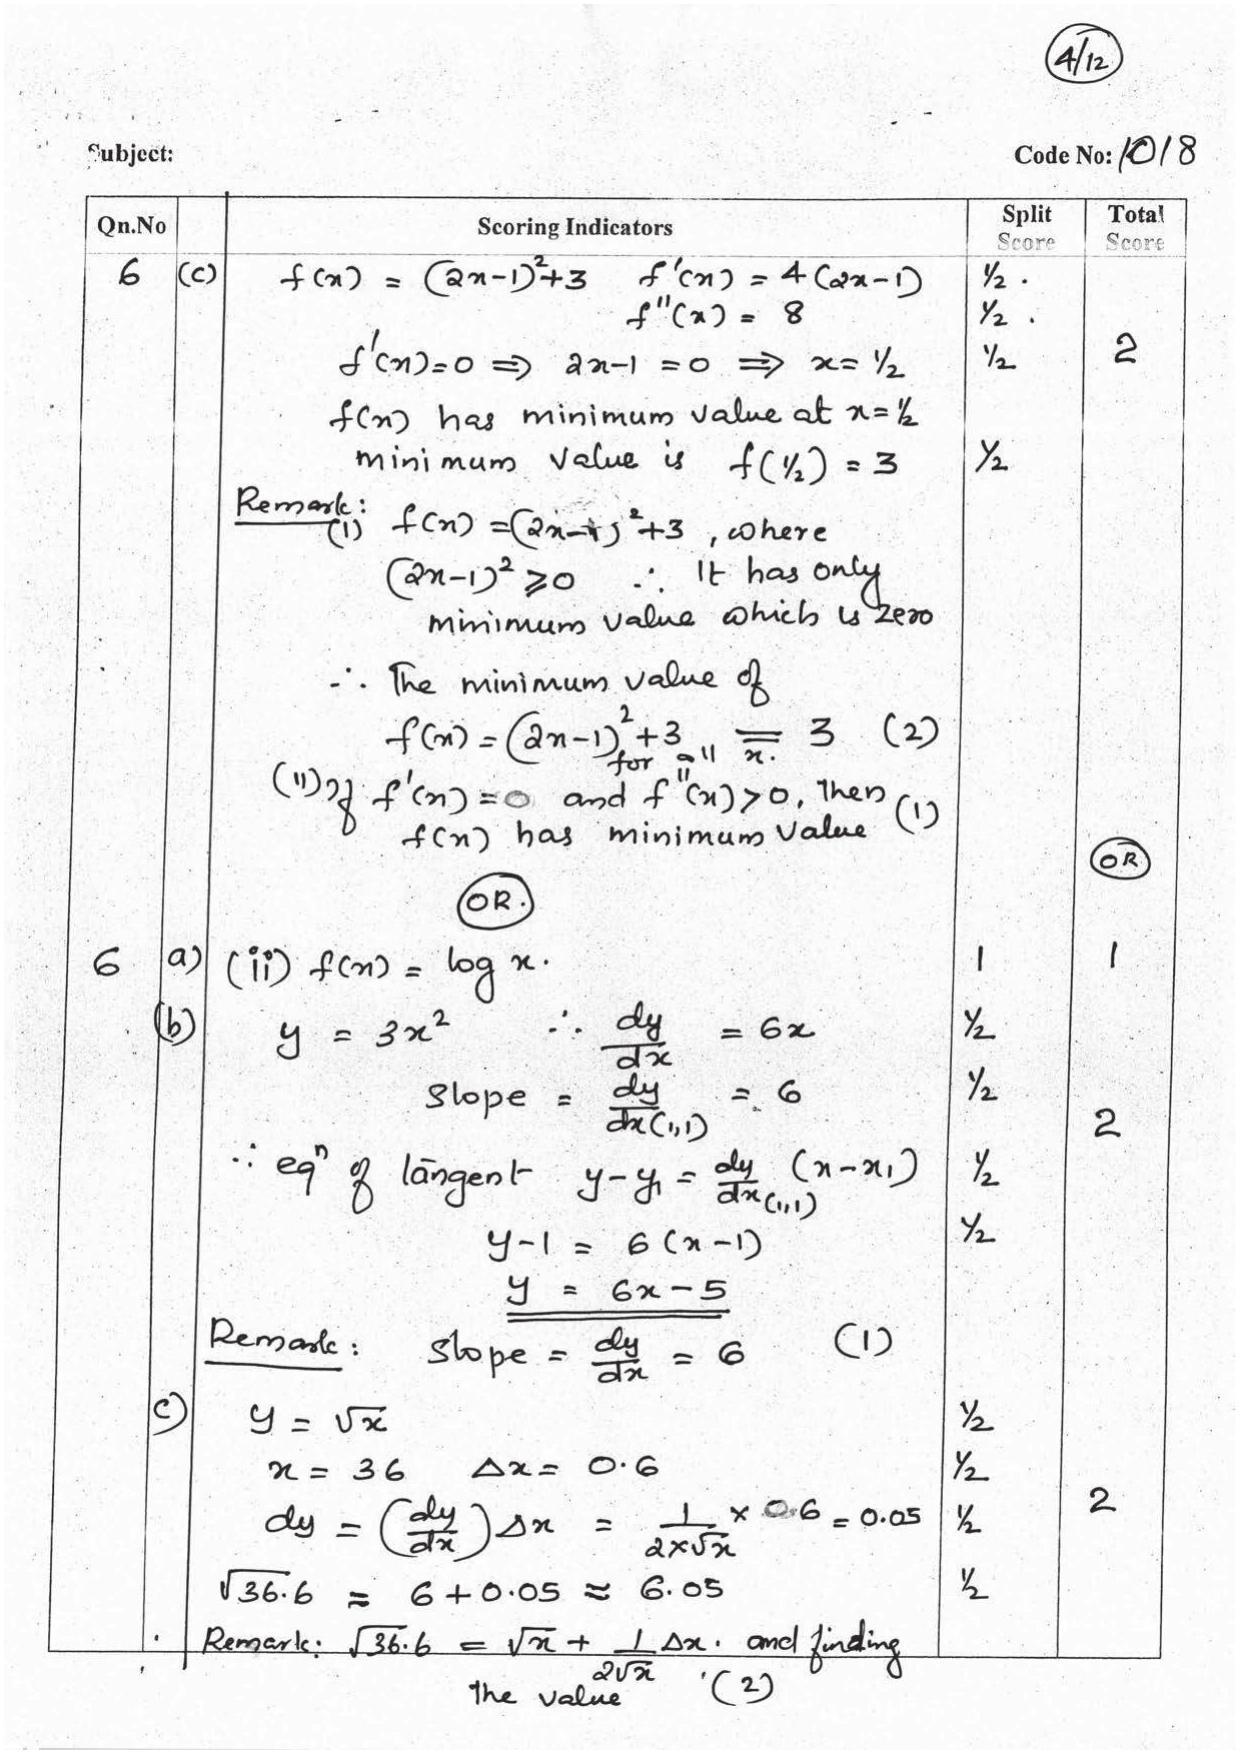 4/12
Subject:
Code No: 1018
Qn.No Scoring Indicators Split Score Total Score
6 (c) f(x) = (2x-1)²+3 f'(x) = 4(2x-1) ½ .
f''(x) = 8 ½ .
f'(x)=0 ⇒ 2x-1 = 0 ⇒ x= ½ ½ 2
f(x) has minimum value at x=½
minimum value is f(½) = 3 ½
Remark:
(i) f(x) =(2x-1)²+3 , where
(2x-1)² ⩾0 ∴ It has only
minimum value which is zero
∴ The minimum value of
f(x) = (2x-1)²+3 = 3 (2)
for all x.
(ii) If f'(x)=0 and f''(x)>0, then
f(x) has minimum value (1)
OR. OR
6 a) (ii) f(x) = log x. 1 1
(b) y = 3x² ∴ dy/dx = 6x ½
Slope = dy/dx(1,1) = 6 ½ 2
∴ eqⁿ of tangent y-y₁ = dy/dx(1,1) (x-x₁) ½
y-1 = 6(x-1) ½
y = 6x-5
Remark: Slope = dy/dx = 6 (1)
c) y = √x ½
x = 36 Δx = 0.6 ½
dy = (dy/dx)Δx = 1/2×√x × 0.6 = 0.05 ½ 2
√36.6 ≈ 6+0.05 ≈ 6.05 ½
Remark: √36.6 = √x + 1/2√x Δx. and finding
the value (2)